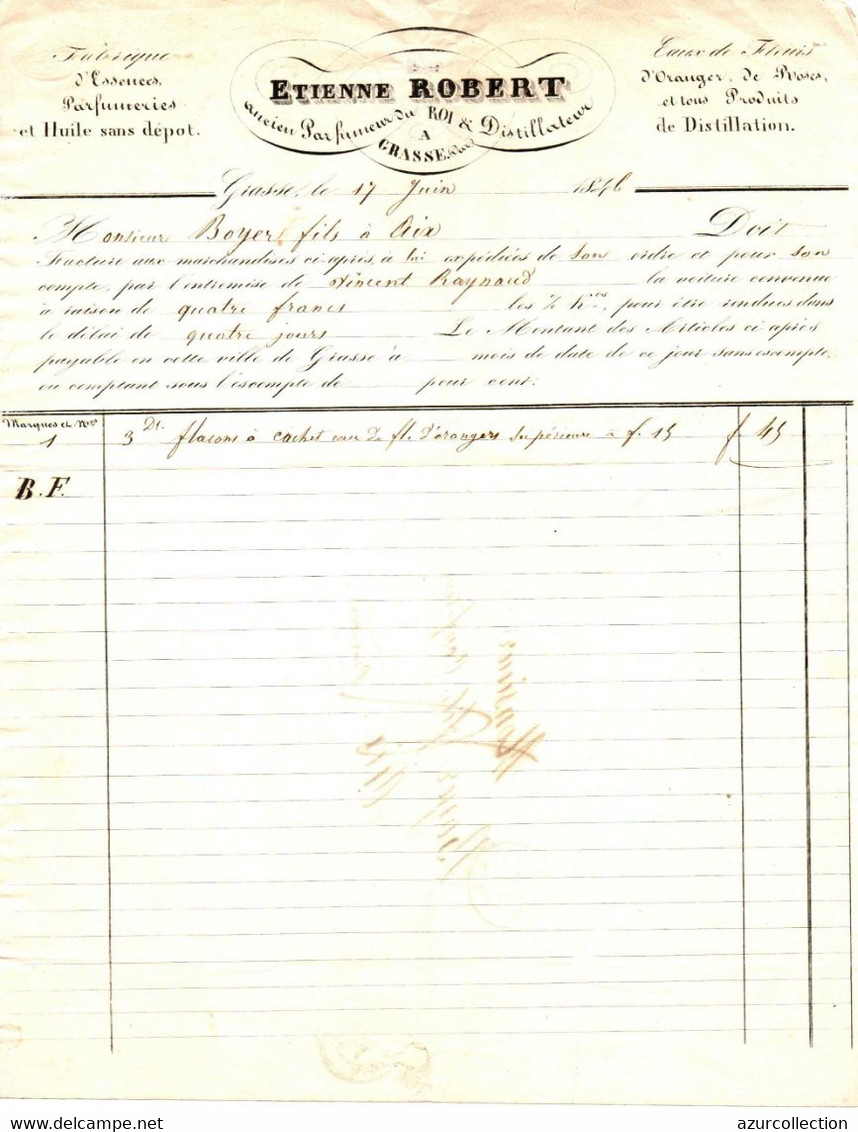 Fabrique
d'Essences,
Parfumeries
et Huile sans dépot.
ETIENNE ROBERT
ancien Parfumeur du ROI & Distillateur
A
GRASSE
Eaux de Fleurs
d'Oranger, de Roses,
et tous Produits
de Distillation.
Grasse, le 17 Juin 1846
Monsieur Boyer fils à Aix Doit
Facture aux marchandises ci après, à lui expédiées de son ordre et pour son
compte, par l'entremise de Vincent Raynaud la voiture convenue
à raison de quatre francs les % K.os, pour être rendues dans
le délai de quatre jours Le Montant des Articles ci après
payable en cette ville de Grasse à mois de date de ce jour sans escompte,
ou comptant sous l'escompte de pour cent.
Marques et Nos
1 3 Dt. flacons à cachet eau de fl. d'orangers supérieure à f. 15 f. 45
B.F.
delcampe.net
azurcollection